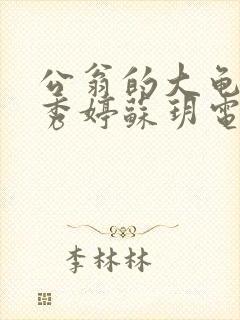 公翁的大龟
秀婷蘇玥電
李林林